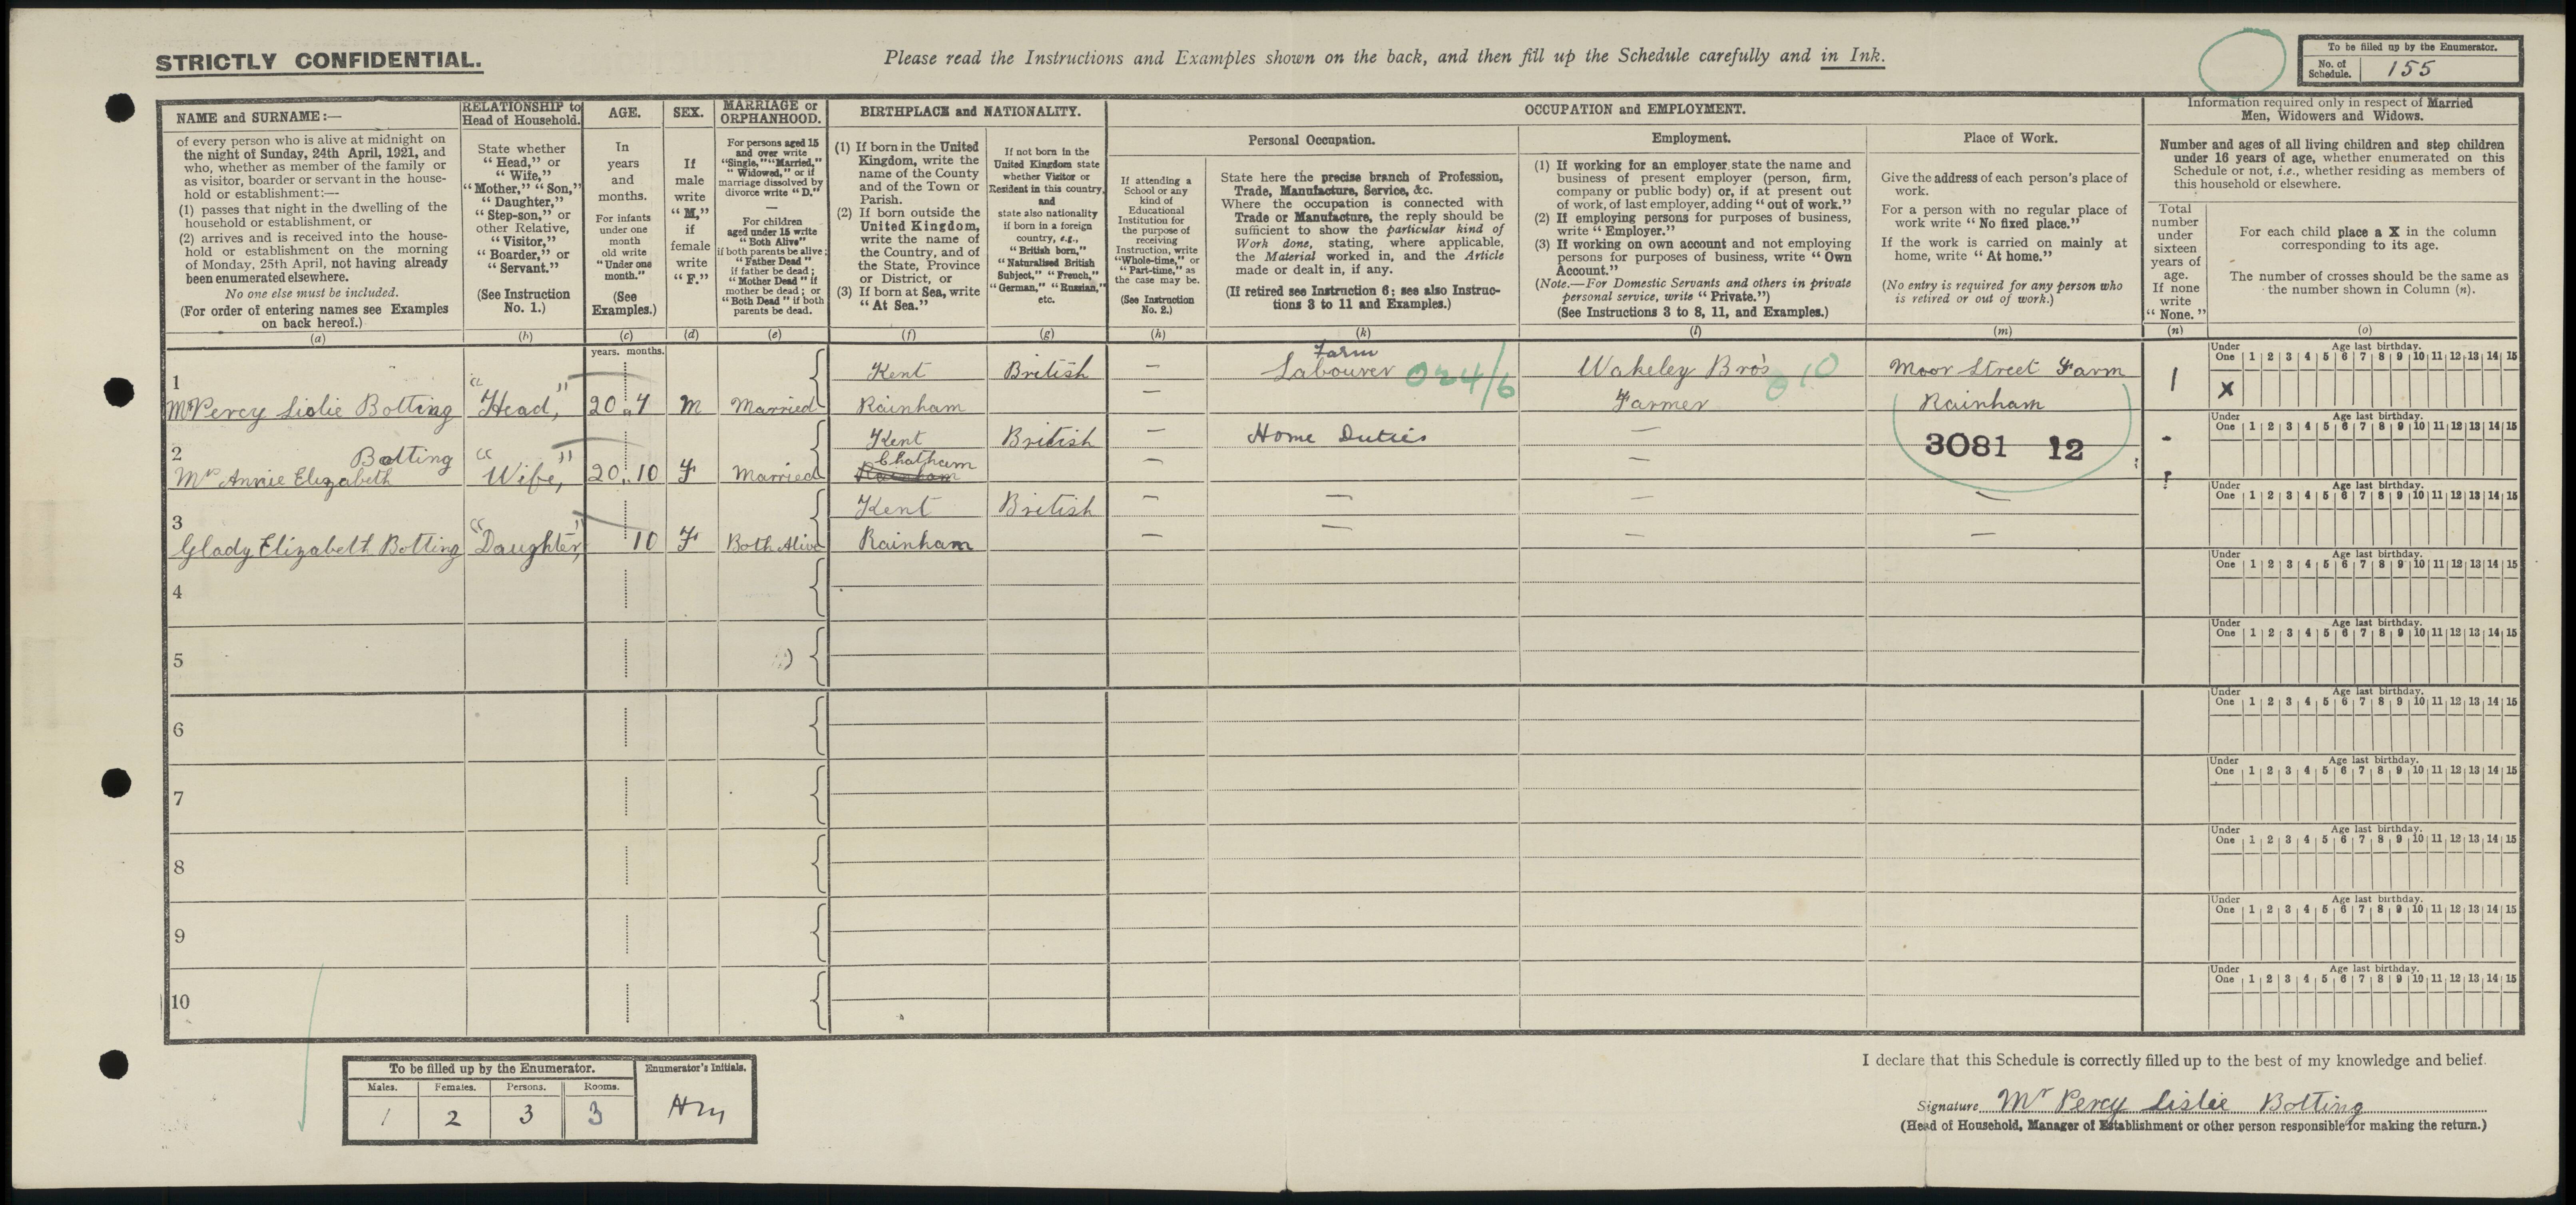 STRICTLY CONFIDENTIAL.
Please read the Instructions and Examples shown on the back, and then fill up the Schedule carefully and in Ink.
To be filled up by the Enumerator.
No. of Schedule. 155
NAME and SURNAME :—
of every person who is alive at midnight on
the night of Sunday, 24th April, 1921, and
who, whether as member of the family or
as visitor, boarder or servant in the house-
hold or establishment:—
(1) passes that night in the dwelling of the
household or establishment, or
(2) arrives and is received into the house-
hold or establishment on the morning
of Monday, 25th April, not having already
been enumerated elsewhere.
No one else must be included.
(For order of entering names see Examples
on back hereof.)
(a)
RELATIONSHIP to
Head of Household.
State whether
"Head," or
"Wife,"
"Mother," "Son,"
"Daughter,"
"Step-son," or
other Relative,
"Visitor,"
"Boarder," or
"Servant."
(See Instruction
No. 1.)
(b)
AGE.
In
years
and
months.
For infants
under one
month
old write
"Under one
month."
(See
Examples.)
(c)
SEX.
If
male
write
"M,"
if
female
write
"F."
(d)
MARRIAGE or
ORPHANHOOD.
For persons aged 15
and over write
"Single," "Married,"
"Widowed," or if
marriage dissolved by
divorce write "D."
—
For children
aged under 15 write
"Both Alive"
if both parents be alive;
"Father Dead"
if father be dead;
"Mother Dead" if
mother be dead; or
"Both Dead" if both
parents be dead.
(e)
BIRTHPLACE and NATIONALITY.
(1) If born in the United
Kingdom, write the
name of the County
and of the Town or
Parish.
(2) If born outside the
United Kingdom,
write the name of
the Country, and of
the State, Province
or District, or
(3) If born at Sea, write
"At Sea."
(f)
If not born in the
United Kingdom state
whether Visitor or
Resident in this country,
and
state also nationality
if born in a foreign
country, e.g.,
"British born,"
"Naturalised British
Subject," "French,"
"German," "Russian,"
etc.
(g)
OCCUPATION and EMPLOYMENT.
Personal Occupation.
If attending a
School or any
kind of
Educational
Institution for
the purpose of
receiving
Instruction, write
"Whole-time," or
"Part-time," as
the case may be.
(See Instruction
No. 2.)
(h)
State here the precise branch of Profession,
Trade, Manufacture, Service, &c.
Where the occupation is connected with
Trade or Manufacture, the reply should be
sufficient to show the particular kind of
Work done, stating, where applicable,
the Material worked in, and the Article
made or dealt in, if any.
(If retired see Instruction 6; see also Instruc-
tions 3 to 11 and Examples.)
(k)
Employment.
(1) If working for an employer state the name and
business of present employer (person, firm,
company or public body) or, if at present out
of work, of last employer, adding "out of work."
(2) If employing persons for purposes of business,
write "Employer."
(3) If working on own account and not employing
persons for purposes of business, write "Own
Account."
(Note.—For Domestic Servants and others in private
personal service, write "Private.")
(See Instructions 3 to 8, 11, and Examples.)
(l)
Place of Work.
Give the address of each person's place of
work.
For a person with no regular place of
work write "No fixed place."
If the work is carried on mainly at
home, write "At home."
(No entry is required for any person who
is retired or out of work.)
(m)
Information required only in respect of Married
Men, Widowers and Widows.
Number and ages of all living children and step children
under 16 years of age, whether enumerated on this
Schedule or not, i.e., whether residing as members of
this household or elsewhere.
Total
number
under
sixteen
years of
age.
If none
write
"None."
(n)
For each child place a X in the column
corresponding to its age.
The number of crosses should be the same as
the number shown in Column (n).
(o)
years. months.
Under One Age last birthday. 1 2 3 4 5 6 7 8 9 10 11 12 13 14 15
1 Mr Percy Lislie Botting "Head," 20 . 7 M Married Kent Rainham British — — Farm Labourer 024/6 Wakeley Bro's 010 Farmer Moor Street Farm Rainham 1 X
Under One Age last birthday. 1 2 3 4 5 6 7 8 9 10 11 12 13 14 15
2 Mrs Annie Elizabeth Botting "Wife," 20 . 10 F Married Kent Chatham British — — Home Duties — — 3081 12 -
Under One Age last birthday. 1 2 3 4 5 6 7 8 9 10 11 12 13 14 15
3 Glady Elizabeth Botting "Daughter," 10 F Both Alive Kent Rainham British — — — — — — — —
Under One Age last birthday. 1 2 3 4 5 6 7 8 9 10 11 12 13 14 15
4
Under One Age last birthday. 1 2 3 4 5 6 7 8 9 10 11 12 13 14 15
5
Under One Age last birthday. 1 2 3 4 5 6 7 8 9 10 11 12 13 14 15
6
Under One Age last birthday. 1 2 3 4 5 6 7 8 9 10 11 12 13 14 15
7
Under One Age last birthday. 1 2 3 4 5 6 7 8 9 10 11 12 13 14 15
8
Under One Age last birthday. 1 2 3 4 5 6 7 8 9 10 11 12 13 14 15
9
Under One Age last birthday. 1 2 3 4 5 6 7 8 9 10 11 12 13 14 15
10
Under One Age last birthday. 1 2 3 4 5 6 7 8 9 10 11 12 13 14 15
To be filled up by the Enumerator.
Males. Females. Persons. Rooms.
1 2 3 3
Enumerator's Initials.
I declare that this Schedule is correctly filled up to the best of my knowledge and belief.
Signature Mr Percy Lislie Botting
(Head of Household, Manager of Establishment or other person responsible for making the return.)